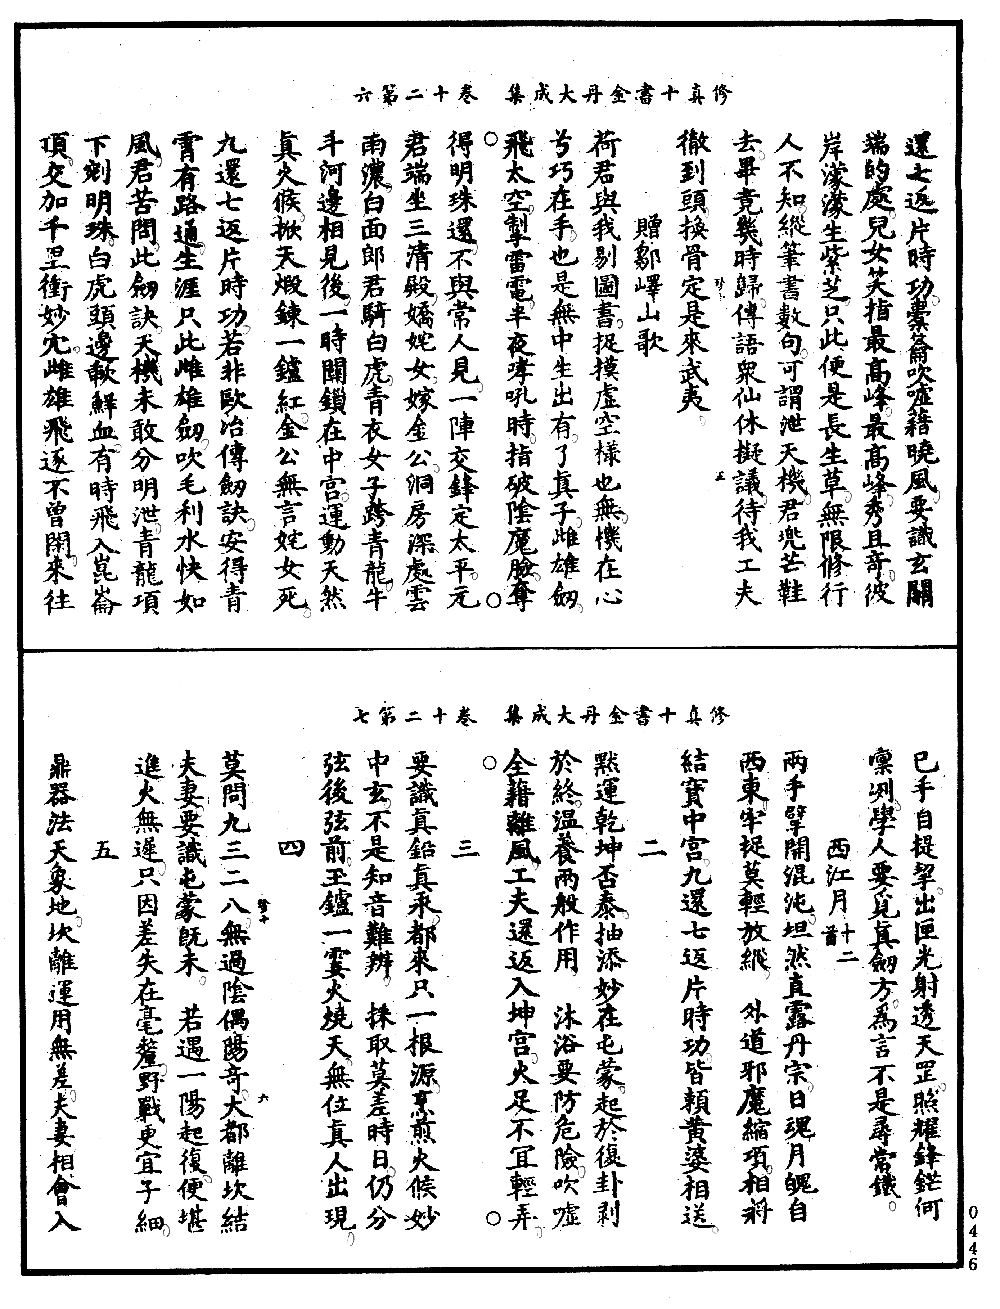 修真十書金丹大成集　卷十二第六
還七返片時功橐籥吹噓藉曉風要識玄關
端的處兒女笑指最高峰最高峰秀且奇彼
岸濛濛生紫芝只此便是長生草無限修行
人不知縱筆書數句可謂泄天機君兜芒鞋
去畢竟幾時歸傳語衆仙休擬議待我工夫
徹到頭換骨定是來武夷
贈鄒峄山歌
荷君與我剔圖書捉摸虛空樣也無機在心
兮巧在手也是無中生出有了真子雌雄劒
飛太空掣雷電半夜哮吼時指破陰魔臉奪
得明珠還不與常人見一陣交鋒定太平元
君端坐三清殿嬌姹女嫁金公洞房深處雲
雨濃白面郎君騎白虎青衣女子跨青龍牛
斗河邊相見後一時關鎖在中宮運動天然
真火候掀天煆鍊一鑪紅金公無言姹女死
九還七返片時功若非歐冶傳劒訣安得青
霄有路通生涯只此雌雄劒吹毛利水快如
風君苦問此劒訣天機未敢分明泄青龍項
下剜明珠白虎頭邊歃鮮血有時飛入崑崙
頂交加千里衝妙宂雌雄飛逐不曾閑來往
修真十書金丹大成集　卷十二第七
已手自提挈出匣光射透天罡照耀鋒鋩何
凜冽學人要覓真劒方爲言不是尋常鐵
西江月十二首
兩手擘開混沌坦然直露丹宗日魂月魄自
西東牢捉莫輕放縱　外道邪魔縮項相將
結寶中宮九還七返片時功皆頼黄婆相送
二
默運乾坤否泰抽添妙在屯蒙起於復卦剥
於終温養兩般作用　沐浴要防危險吹噓
全藉離風工夫還返入坤宮火足不宜輕弄
三
要識真鉛真汞都來只一根源烹煎火候妙
中玄不是知音難辨　採取莫差時日仍分
弦後弦前玉鑪一霎火燒天無位真人出現
四
莫問九三二八無過陰偶陽奇大都離坎結
夫妻要識屯蒙既未　若遇一陽起復便堪
進火無遲只因差失在毫釐野戰更宜子細
五
鼎器法天象地坎離運用無差夫妻相會入
0446